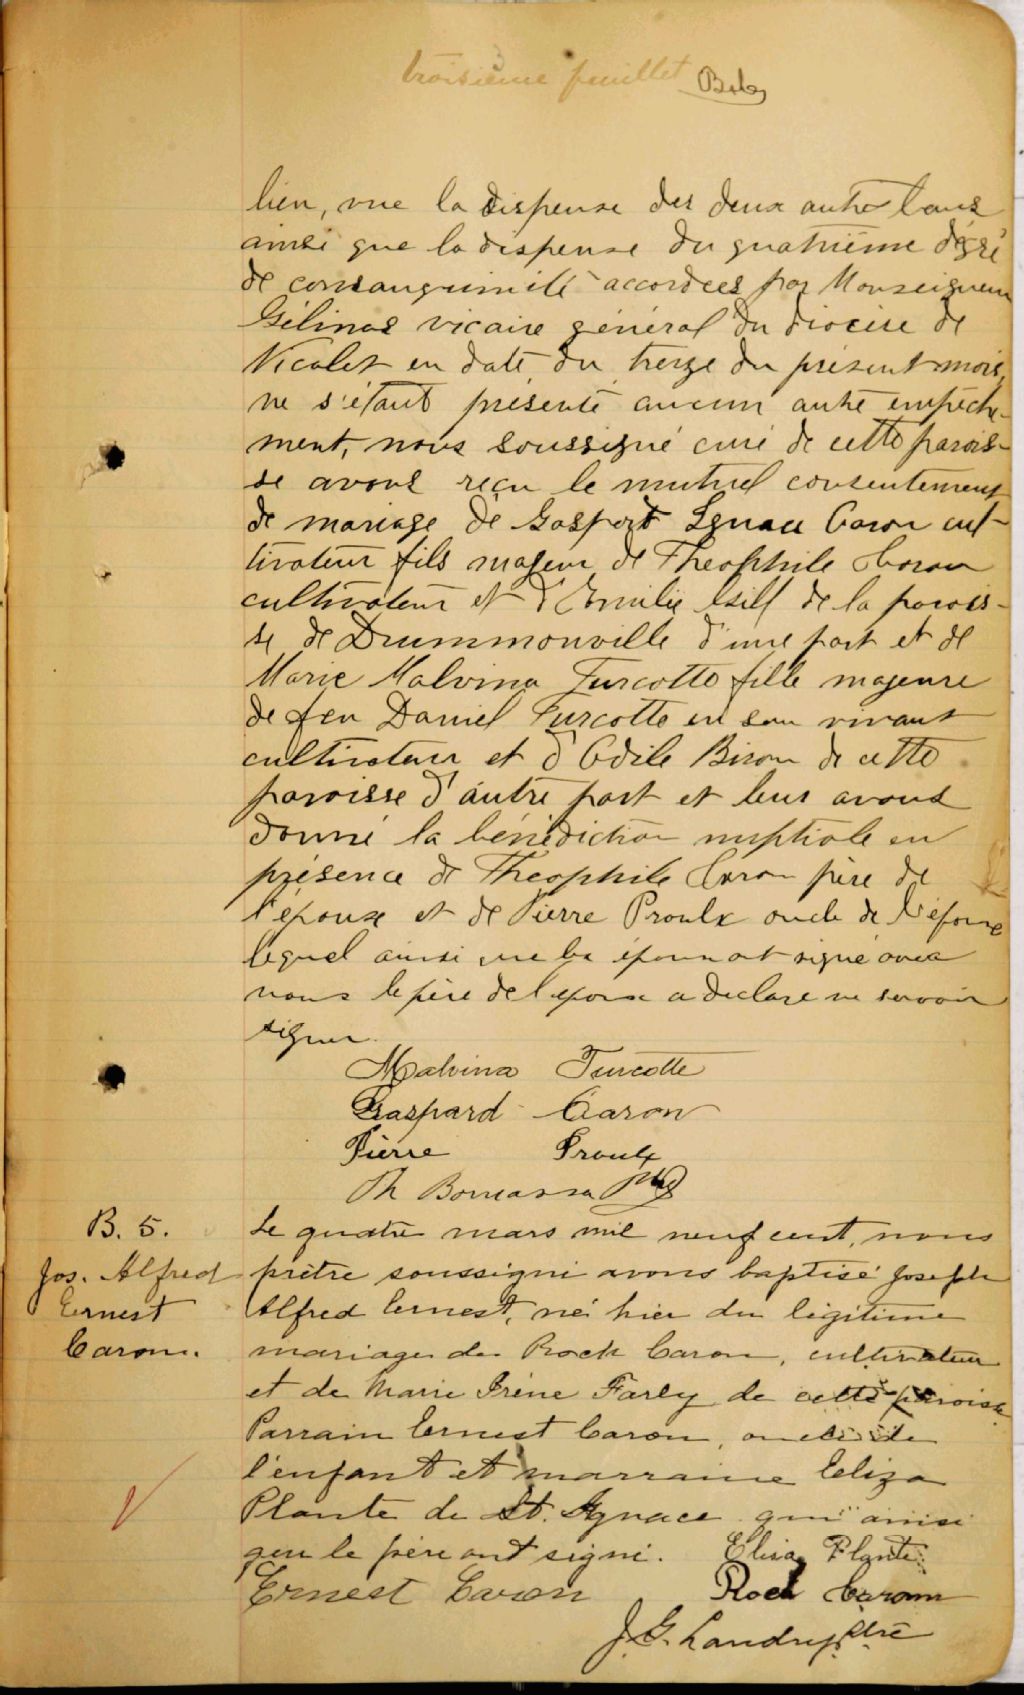 troisième feuillet
lien, vue la dispense des deux autres bans
ainsi que la dispense du quatrième dégré
de consanguinité accordées par Monseigneur
Gélinas vicaire général du diocèse de
Nicolet en date du treize du présent mois,
ne s'étant présenté aucun autre empêche-
ment, nous soussigné curé de cette parois-
se avons reçu le mutuel consentement
de mariage de Gaspard Ignace Caron cul-
tivateur fils majeur de Theophile Caron
cultivateur et d'Emilie de la parois-
se de Drummonville d'une part et de
Marie Malvina Turcotte fille majeure
de feu Daniel Turcotte en son vivant
cultivateur et d'Odile Biron de cette
paroisse d'autre part et leur avons
donné la bénédiction nuptiale en
présence de Theophile Caron père de
l'époux et de Pierre Proulx oncle de l'épouse
lequel ainsi que les époux ont signé avec
nous le père de l'époux a declaré ne savoir
signer.
Malvina Turcotte
Gaspard Caron
Pierre Proulx
Th
B. 5.
Jos. Alfred
Ernest
Caron.
Le quatre mars mil neuf cent, nous
prêtre soussigné avons baptisé Joseph
Alfred Ernest, né hier du légitime
mariage de Rock Caron, cultivateur
et de Marie Irène Farly de cette paroisse
Parrain Ernest Caron, oncle de
l'enfant et marraine Eliza
Plante de St. Ignace qui ainsi
que le père ont signé. Elisa Plante
Ernest Caron Roch Caron
J. G. Landry, Ptre